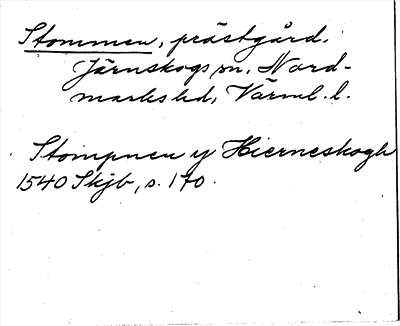 Stommen, prästgård.
Järnskogs sn, Nord-
marks hd, Värml. l.
Stompnen y Hierneskogh
1540 Skjb, s. 170.